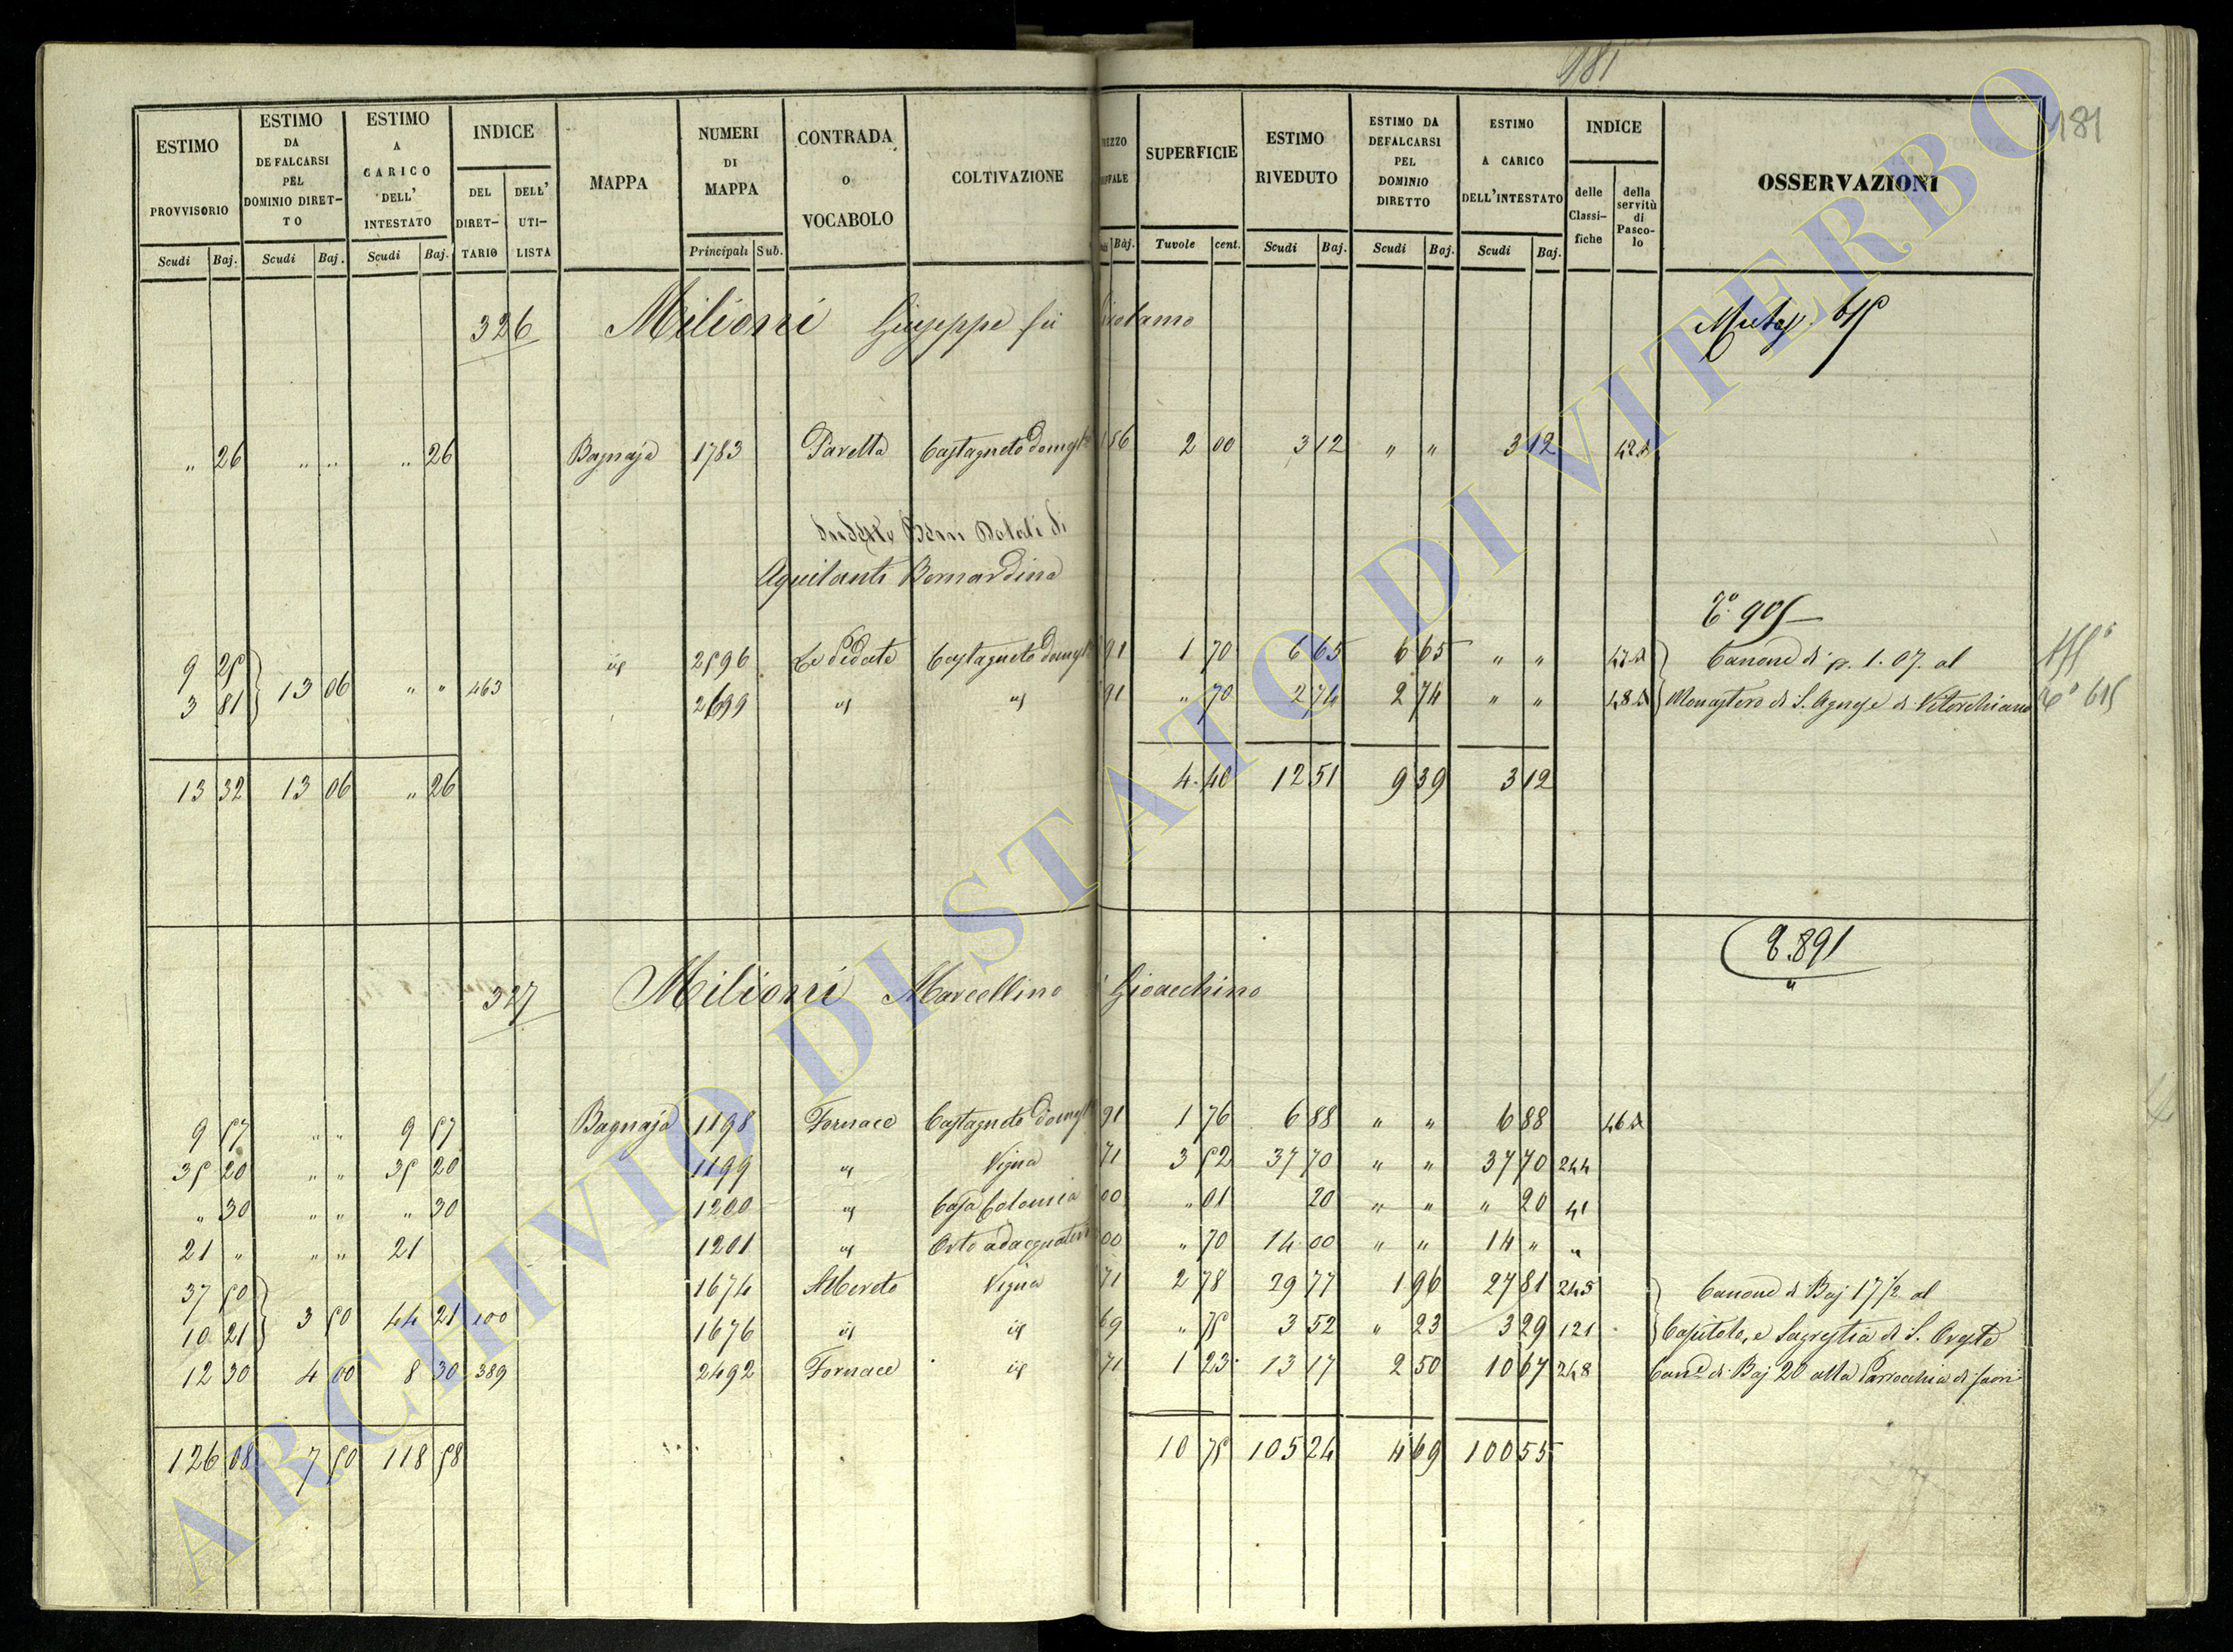 181
181
ESTIMO PROVVISORIO
ESTIMO DA DEFALCARSI PEL DOMINIO DIRETTO
ESTIMO A CARICO DELL' INTESTATO
INDICE
DEL DIRETTARIO
DELL' UTILISTA
MAPPA
NUMERI DI MAPPA
CONTRADA O VOCABOLO
COLTIVAZIONE
SUPERFICIE
ESTIMO RIVEDUTO
ESTIMO DA DEFALCARSI PEL DOMINIO DIRETTO
ESTIMO A CARICO DELL'INTESTATO
INDICE
delle Classifiche
della servitù di Pascolo
OSSERVAZIONI
Scudi Baj. Scudi Baj. Scudi Baj. Principali Sub. Baj. Tavole cent. Scudi Baj. Scudi Baj. Scudi Baj.
326 Milioni Giuseppe fu Girolamo
„ 26 „ „ „ 26 Bagnaja 1783 Pavella Castagneto 156 2 00 3 12 „ „ 3 12
Beni Dotali di
Aquilanti Bernardina
T.° 905
9 25 id 2596 Le Pedate Castagneto 91 1 70 6 65 6 65 „ „ Canone di p. 1. 07. al
13 06 „ „ 463
3 81 2699 id id 91 „ 70 2 74 2 74 „ „ Monastero di S. Agnese di Vitorchiano
13 32 13 06 „ 26 4. 40 12 51 9 39 3 12
891
327 Milioni Marcellino Gioacchino
9 57 „ „ 9 57 Bagnaja 1198 Fornace Castagneto 91 1 76 6 88 „ „ 6 88
35 20 „ „ 35 20 1199 id Vigna 71 3 52 37 70 „ „ 37 70 244
„ 30 „ „ „ 30 1200 id Casa Colonica 00 „ 01 20 „ „ „ 20 41
21 „ „ „ 21 1201 id Orto adacquativo 00 „ 70 14 00 „ „ 14 „ „
37 50 1674 Albereto Vigna 71 2 78 29 77 1 96 27 81 245 Canone di Baj 17½ al
3 50 44 21 100
10 21 1676 id id 69 „ 75 3 52 „ 23 3 29 121 Capitolo, e Sagrestia di S. Oreste
12 30 4 00 8 30 389 2492 Fornace id 71 1 23 13 17 2 50 10 67 248 Can.e di Baj 20 alla Parrocchia di fuori
126 08 7 50 118 58 10 75 105 24 4 69 100 55
ARCHIVIO DI STATO DI VITERBO